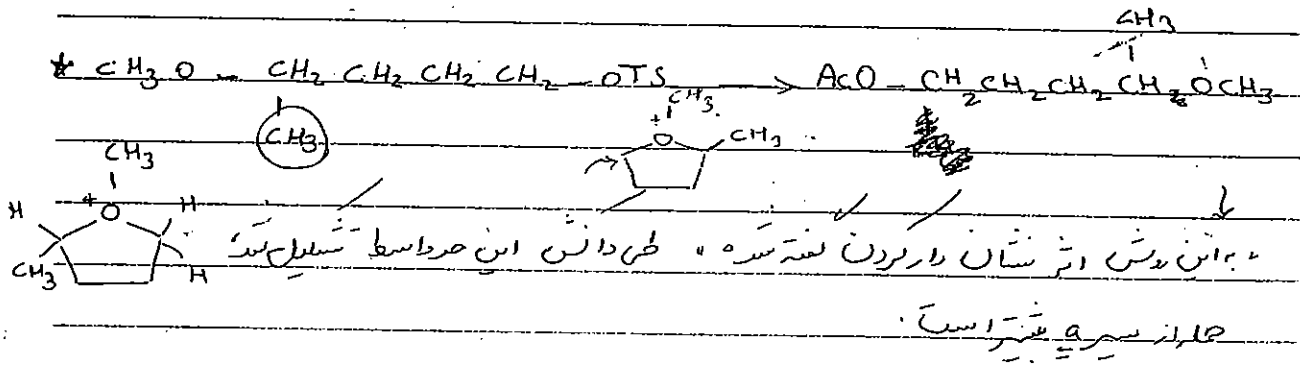 CH3
* CH3O - CH2 CH2 CH2 CH2 - OTS → AcO - CH2CH2CH2CH2OCH3
CH3
CH3
+O
CH3
CH3
+O
H
H
H
CH3
به این روش اثر نشان دار کردن گفته شده ، طی واکنش این حدواسط تشکیل شد
حمله از سر
است .